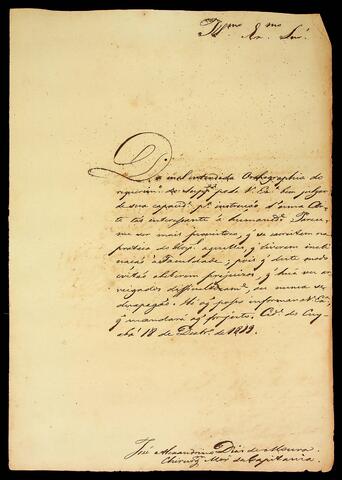 Illmo. Exmo. Snr.
Da mal entendida Orthographia do
requerimto. do Suppe. pode V. Exa. bem julgar
de sua capacide. pa. instrucão d'uma Arte
tão interessante á humanide. Parece
me ser mais proveitozo, q se
pratica do Hospl. aquelles q tiverem incli
nacão á Faculdade; pois q deste modo
evitão abuzos e prejuizos, q huã vez ar
reigados difficultozamte. ou nunca se
apagão. He o q posso informar a V. Exa.
q mandará o q for justo. Cide. do Cuy
abá 18 de Dezbro. de 1819.
José Alexandrino Dias de Moura
Chirurgm. Mór da Capitania